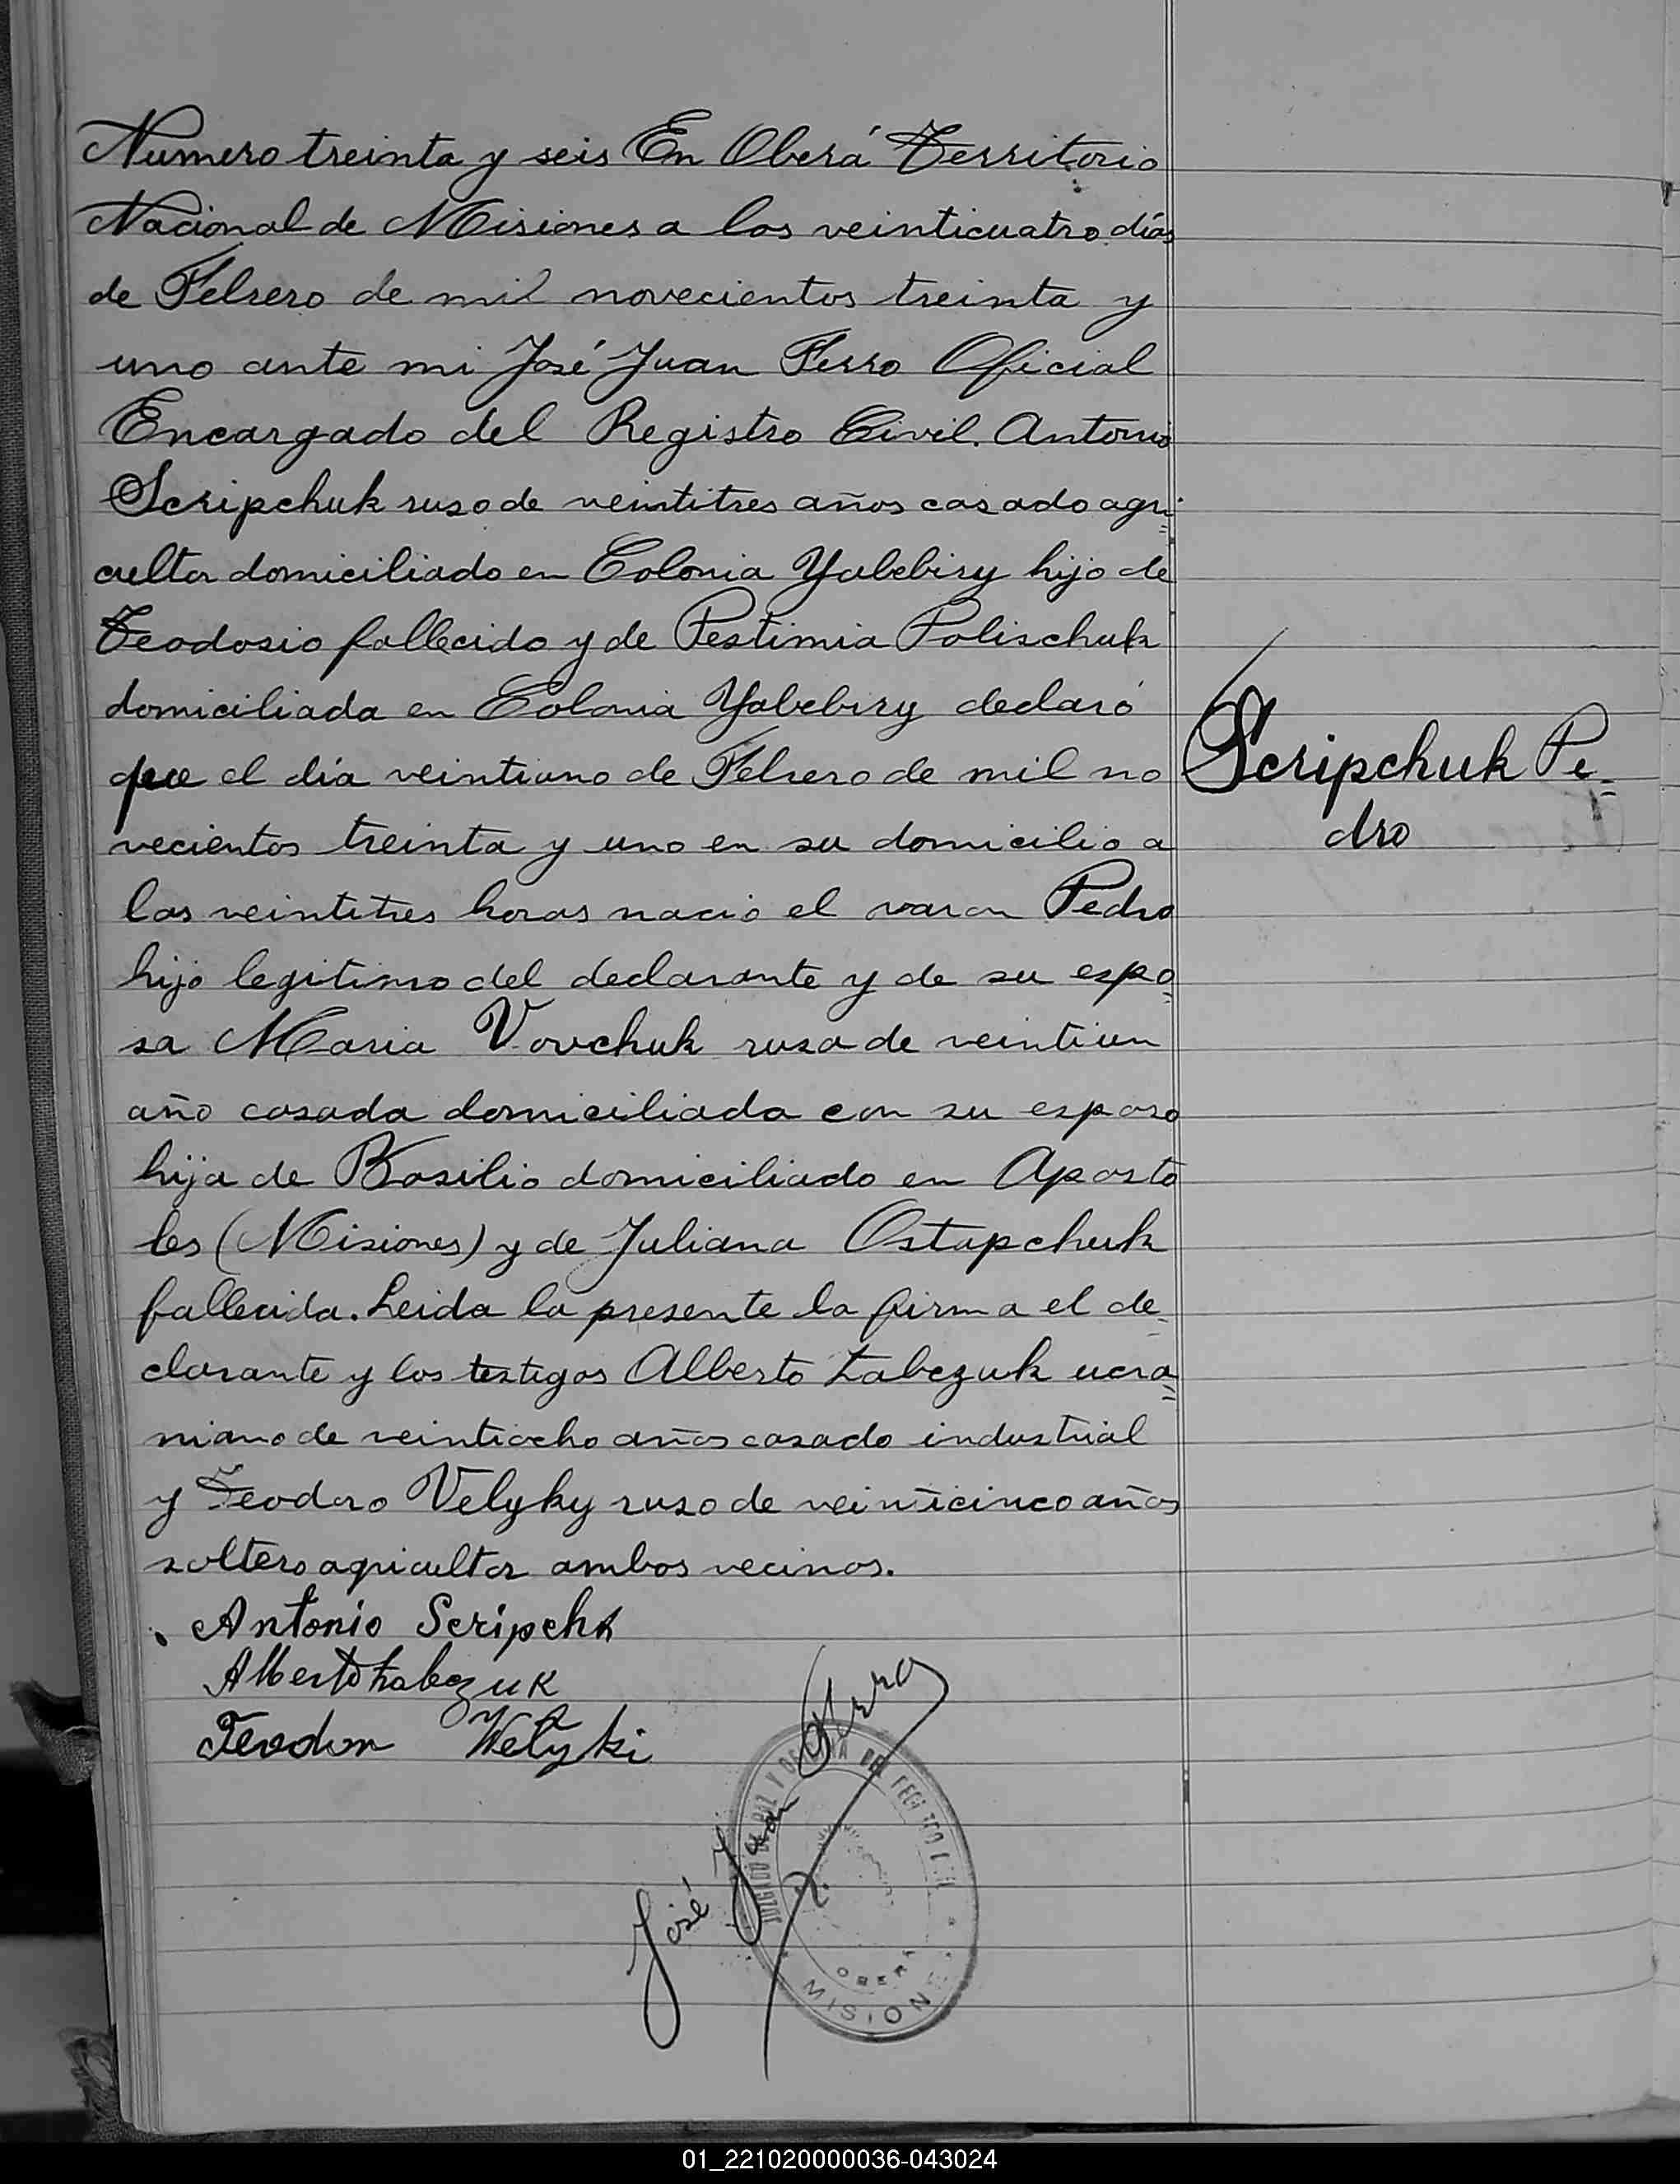 Numero treinta y seis En Oberá Territorio
Nacional de Misiones a los veinticuatro días
de Febrero de mil novecientos treinta y
uno ante mi José Juan Ferro Oficial
Encargado del Registro Civil. Antonio
Scripchuk ruso de veintitres años casado agri
cultor domiciliado en Colonia Yabebiry hijo de
Teodosio fallecido y de Pestimia Polischuk
domiciliada en Colonia Yabebiry declaró
que el día veintiuno de Febrero de mil no
vecientos treinta y uno en su domicilio a
las veintitres horas nació el varon Pedro
hijo legitimo del declarante y de su espo
sa Maria Vovchuk rusa de veintiun
año casada domiciliada con su esposo
hija de Basilio domiciliado en Aposto
les (Misiones) y de Juliana Ostapchuk
fallecida. Leida la presente la firma el de
clarante y los testigos Alberto Labczuk ucra
niano de veintiocho años casado industrial
y Teodoro Velyky ruso de veinticinco años
soltero agricultor ambos vecinos.
Scripchuk Pe-
dro
Antonio Scripchk
Alberto Labczuk
Teodor Welyki
José Juan Ferro
JUZGADO DE PAZ Y DEL REGISTRO CIVIL
OBERA
MISIONES
01_221020000036-043024